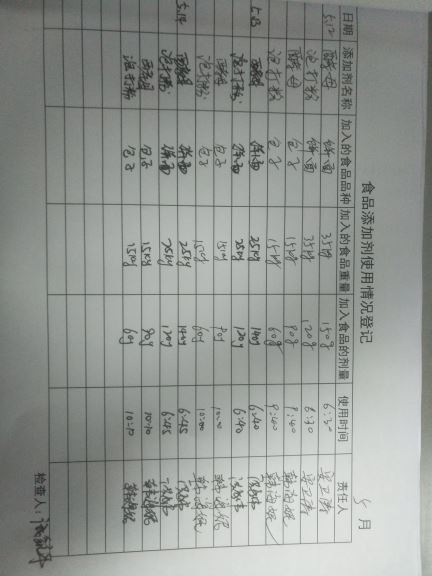 食品添加剂使用情况登记
5月
日期 添加剂名称 加入的食品品种 加入的食品重量 加入食品的剂量 使用时间 责任人
5.12 酵母 饼面 35kg 150g 6:30
泡打粉 饼面 35kg 120g 6:30
酵母 包子 15kg 90g 9:40
泡打粉 包子 15kg 60g 9:40
5.13 酵母 饼面 25kg 140g 6:40
泡打粉 饼面 25kg 120g 6:40
酵母 包子 15kg 90g 10:00
泡打粉 包子 15kg 60g 10:00
5.14 酵母 饼面 25kg 140g 6:45
泡打粉 饼面 25kg 120g 6:45
酵母 包子 15kg 90g 10:10
泡打粉 包子 15kg 60g 10:10
检查人: